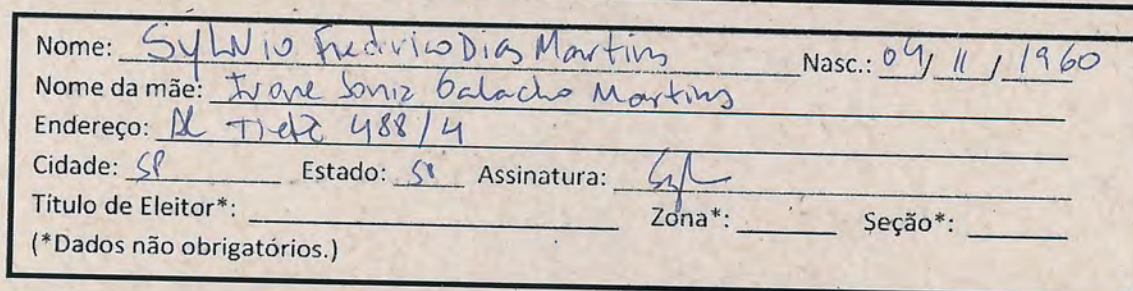 Nome: Sylvio Frederico Dias Martins Nasc.: 04/11/1960
Nome da mãe: Ivone Sonia Galacho Martins
Endereço: Al Tietê 488/4
Cidade: SP Estado: SP Assinatura:
Título de Eleitor*: Zona*: Seção*:
(*Dados não obrigatórios.)